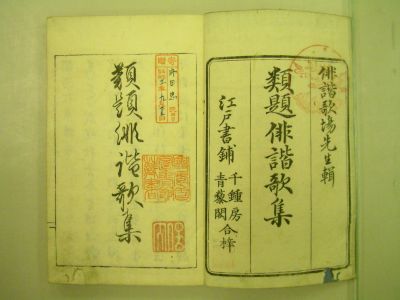 俳諧歌場先生輯
類題俳諧歌集
江戸書鋪
千鍾房
青藜閣
合梓
類題俳諧歌集